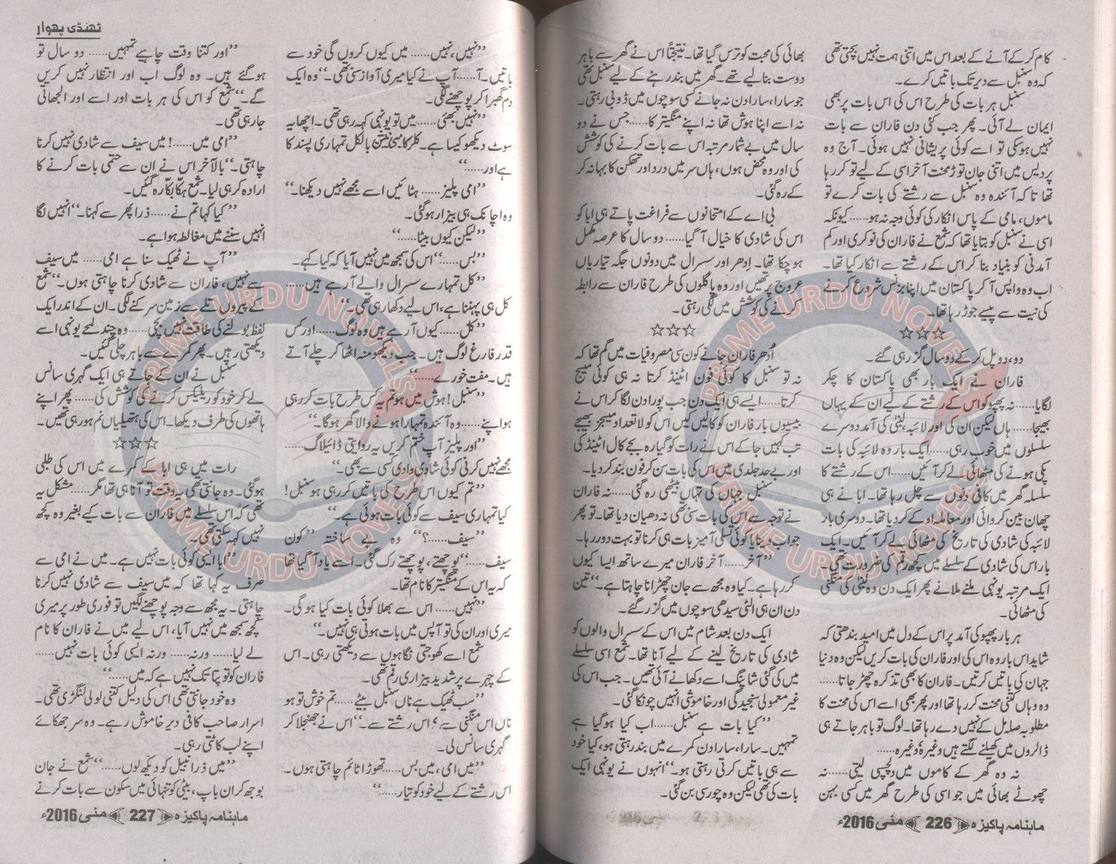 کام کر کے آنے کے بعد اس میں اتنی ہمت نہیں بچتی تھی
کہ وہ سنبل سے دیر تک باتیں کرے۔
سنبل ہر بات کی طرح اس کی اس بات پر بھی
ایمان لے آئی۔ پھر جب کئی دن فاران سے بات
نہیں ہو سکی تو اسے کوئی پریشانی نہیں ہوئی۔ آج وہ
پردیس میں اتنی جان توڑ محنت آخر اسی کے لیے تو کر رہا
تھا تا کہ آئندہ وہ سنبل سے رشتے کی بات کرے تو
ماموں، مامی کے پاس انکار کی کوئی وجہ نہ ہو...... کیونکہ
اسی نے سنبل کو بتایا تھا کہ شمع نے فاران کی نوکری اور کم
آمدنی کو بنیاد بنا کر اس کے رشتے سے انکار کیا تھا۔
اب وہ واپس آ کر پاکستان میں اپنا بزنس شروع کرنے
کی نیت سے پیسے جوڑ رہا تھا۔
☆☆☆
دو، دو پل کر کے دو سال گزر ہی گئے۔
فاران نے ایک بار بھی پاکستان کا چکر
لگایا...... نہ پھپو کو اس کے رشتے کے لیے ان کے یہاں
بھیجا...... ہاں لیکن ان کی اور لائبہ، لبنٰی کی آمد دوسرے
سلسلوں میں خوب رہی...... ایک بار وہ لائبہ کی بات
پکی ہونے کی مٹھائی لے کر آئیں...... اس کے رشتے کا
سلسلہ گھر میں کافی دنوں سے چل رہا تھا۔ ابا نے ہی
چھان بین کروائی اور معاملہ او کے کر دیا تھا۔ دوسری بار
لائبہ کی شادی کی تاریخ کی مٹھائی لے کر آئیں۔ ایک
بار اس کی شادی کے سلسلے میں کچھ رقم کی ضرورت تھی۔
ایک مرتبہ یونہی ملنے ملانے پھر ایک دن وہ لبنٰی کی منگنی
کی مٹھائی۔
ہر بار پھپو کی آمد پر اس کے دل میں امید بندھتی کہ
شاید اس بار وہ اس کی اور فاران کی بات کریں لیکن وہ دنیا
جہان کی باتیں کرتیں۔ فاران کا بھی تذکرہ چھڑ جاتا......
وہ وہاں کتنی محنت کر رہا تھا اور پھر بھی اسے اس کی محنت کا
مطلوبہ صلہ مل کے نہیں دے رہا تھا۔ لوگ تو باہر جاتے ہی
ڈالروں میں کھیلنے لگتے ہیں وغیرہ وغیرہ......
نہ وہ گھر کے کاموں میں دلچسپی لیتی...... نہ
چھوٹے بھائی میں جو اسی کی طرح گھر میں کسی بہن
بھائی کی محبت کو ترس گیا تھا۔ نتیجتاً اس نے گھر سے باہر
دوست بنا لیے تھے۔ گھر میں بند رہنے کے لیے سنبل تھی
جو سارا، سارا دن نہ جانے کسی سوچوں میں ڈوبی رہتی۔
نہ اسے اپنا ہوش تھا نہ اپنے منگیتر کا...... جس نے دو
سال میں بے شمار مرتبہ اس سے بات کرنے کی کوشش
کی اور وہ محض ہوں، ہاں سر میں درد اور تھکن کا بہانہ کر
کے رہ گئی۔
بی اے کے امتحانوں سے فراغت پاتے ہی ابا کو
اس کی شادی کا خیال آ گیا...... دو سال کا عرصہ مکمل
ہو چکا تھا۔ ادھر اور سسرال میں دونوں جگہ تیاریاں
عروج پر تھیں اور وہ پاگلوں کی طرح فاران سے رابطہ
کرنے کی کوشش میں لگی رہتی۔
☆☆☆
اُدھر فاران جانے کون سی مصروفیات میں گم تھا کہ
نہ تو سنبل کا کوئی فون اٹینڈ کرتا نہ ہی کوئی میسج
کرتا...... ایسے ہی ایک دن جب پورا دن لگا کر اس نے
بیسیوں بار فاران کو کالیں کیں اس کو لا تعداد میسجز بھیجے
تب کہیں جا کے اس نے رات کو گیارہ بجے کال اٹینڈ کی
اور بے حد جلدی میں اس کی بات سن کر فون بند کر دیا۔
سنبل جہاں کی تہاں بیٹھی رہ گئی...... نہ فاران
نے توجہ سے اس کی بات سنی تھی نہ دھیان دیا تھا۔ تو پھر
جواب دینا یا کوئی تسلی آمیز بات ہی کرنا تو بہت دور رہا۔
"آخر...... آخر فاران میرے ساتھ ایسا کیوں
کر رہا ہے۔ کیا وہ مجھ سے جان چھڑانا چاہتا ہے۔" تین
دن ان ہی الٹی سیدھی سوچوں میں گزر گئے۔
ایک دن بعد شام میں اس کے سسرال والوں کو
شادی کی تاریخ لینے کے لیے آنا تھا۔ شمع اسی سلسلے
میں کی گئی شاپنگ اسے دکھانے آئی تھیں۔ جب اس کی
غیر معمولی سنجیدگی اور خاموشی انہیں چونکا گئی۔
"کیا بات ہے سنبل...... اب کیا ہو گیا ہے
تمہیں۔ سارا، سارا دن کمرے میں بند رہتی ہو، کیا خود
سے ہی باتیں کرتی رہتی ہو۔" انہوں نے یونہی ایک
بات کی تھی لیکن وہ چور سی بن گئی۔
ماہنامہ پاکیزہ 226 مئی 2016ء
ٹھنڈی پھوار
"نہیں، نہیں...... میں کیوں کروں گی خود سے
باتیں۔ آ...... آپ نے کیا میری آواز سنی تھی۔" وہ ایک
دم گھبرا کر پوچھنے لگی۔
"نہیں بھئی...... میں تو یونہی کہہ رہی تھی۔ اچھا یہ
سوٹ دیکھو کیسا ہے۔ کلر کامبی نیشن بالکل تمہاری پسند کا
ہے اور......"
"امی پلیز...... ہٹائیں اسے مجھے نہیں دیکھنا۔"
وہ اچانک ہی بیزار ہو گئی۔
"لیکن کیوں بیٹا......"
"بس......" اس کی سمجھ میں نہیں آیا کہ کیا کہے۔
"کل تمہارے سسرال والے آ رہے ہیں......
کل ہی پہننا ہے، اس لیے دکھا رہی تھی۔"
"کل...... کیوں آ رہے ہیں وہ لوگ...... اور کس
قدر فارغ لوگ ہیں۔ جب دیکھو منہ اٹھا کر چلے آتے
ہیں۔ مفت خورے......"
"سنبل! ہوش میں ہو تم یہ کس طرح بات کر رہی
ہو اپنے...... وہ آئندہ تمہارا ہونے والا گھر ہو گا۔"
"اور پلیز آپ ختم کریں یہ روایتی ڈائیلاگ......
مجھے نہیں کرنی کوئی شادی وادی کسی سے بھی۔"
"تم کیوں اس طرح کی باتیں کر رہی ہو سنبل!
کیا تمہاری سیف سے کوئی بات ہوئی ہے۔"
"سیف......؟" وہ بے ساختہ "کون
سیف......" پوچھتے، پوچھتے رک گئی۔ اسے یاد آ گیا تھا
کہ یہ اس کے منگیتر کا نام تھا۔
"نہیں...... اس سے بھلا کوئی بات کیا ہو گی۔
میری اور ان کی تو آپس میں بات ہوتی ہی نہیں۔"
شمع اسے کھوجتی نگاہوں سے دیکھتی رہی۔ اس
کے چہرے پر شدید بیزاری رقم تھی۔
"سب ٹھیک ہے ناں سنبل بیٹے...... تم خوش تو ہو
ناں اس منگنی سے، اس رشتے سے۔" اس نے جھنجلا کر
گہری سانس لی۔
"میں امی، میں بس...... تھوڑا ٹائم چاہتی ہوں۔
اس رشتے کے لیے خود کو تیار......"
"اور کتنا وقت چاہیے تمہیں...... دو سال تو
ہو گئے ہیں۔ وہ لوگ اب اور انتظار نہیں کریں
گے۔" شمع کو اس کی ہر بات اور اسے اور الجھائی
جا رہی تھی۔
"امی میں......! میں سیف سے شادی نہیں کرنا
چاہتی۔" بالآخر اس نے ان سے حتمی بات کرنے کا
ارادہ کر ہی لیا۔ شمع ہکا بکا رہ گئیں۔
"کیا کہا تم نے...... ذرا پھر سے کہنا۔" انہیں لگا
انہیں سننے میں مغالطہ ہوا ہے۔
"آپ نے ٹھیک سنا ہے امی...... میں سیف
سے نہیں، فاران سے شادی کرنا چاہتی ہوں۔" شمع
کے پیروں تلے سے زمین سرکنے لگی۔ ان کے اندر ایک
لفظ بولنے کی طاقت نہیں بچی...... وہ چند لمحے یونہی اسے
دیکھتی رہیں۔ پھر کمرے سے باہر چلی گئیں۔
سنبل نے ان کے جاتے ہی ایک گہری سانس
لے کر خود کو ریلیکس کرنے کی کوشش کی...... پھر اپنے
ہاتھوں کی طرف دیکھا۔ اس کی ہتھیلیاں نم ہو رہی تھیں۔
☆☆☆
رات میں ہی ابا کے کمرے میں اس کی طلبی
ہو گئی۔ وہ جانتی تھی یہ وقت تو آنا ہی تھا مگر...... مشکل یہ
تھی کہ اس سلسلے میں فاران سے بات کیے بغیر وہ کچھ
نہیں کہہ سکتی تھی۔
"ابا ایسی کوئی بات نہیں ہے۔ میں نے امی سے
صرف یہ کہا تھا کہ میں سیف سے شادی نہیں کرنا
چاہتی۔ یہ مجھ سے وجہ پوچھنے لگیں تو فوری طور پر میری
کچھ سمجھ میں نہیں آیا، اس لیے میں نے فاران کا نام
لے لیا...... ورنہ...... ورنہ ایسی کوئی بات نہیں......
فاران کو تو پتا تک نہیں ہے کہ میں......"
وہ خود جانتی تھی اس کی دلیل کتنی لولی لنگڑی تھی۔
اسرار صاحب کافی دیر خاموش رہے۔ وہ سر جھکائے
اپنے لب کاٹتی رہی۔
"میں ذرا نبیل کو دیکھ لوں......" شمع نے جان
بوجھ کر ان باپ، بیٹی کو تنہائی میں سکون سے بات کرنے
ماہنامہ پاکیزہ 227 مئی 2016ء
PRIME URDU NOVELS
PRIME URDU NOVELS
PRIME URDU NOVELS
PRIME URDU NOVELS